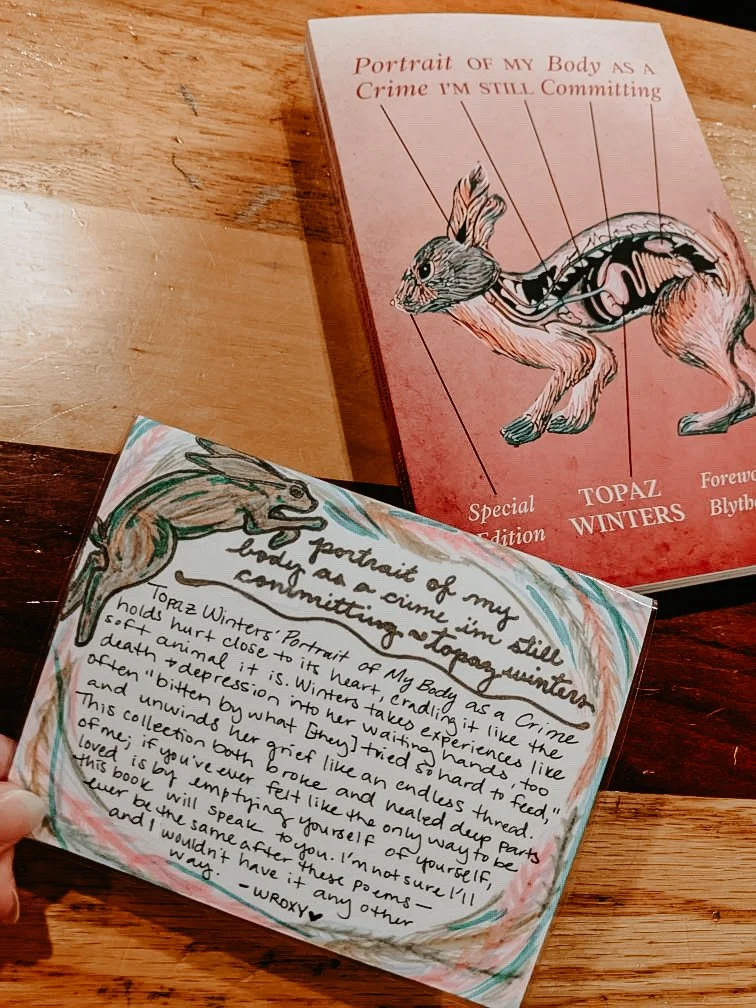 Portrait OF MY Body AS A
Crime I'M STILL Committing
Special
Edition
TOPAZ
WINTERS
Forewo
Blyth
portrait of my
body as a crime im still
committing ~ topaz winters
Topaz Winters' Portrait of My Body as a Crime
holds hurt close to its heart, cradling it like the
soft animal it is. Winters takes experiences like
death & depression into her waiting hands, too
often "bitten by what [they] tried so hard to feed,"
and unwinds her grief like an endless thread.
This collection both broke and healed deep parts
of me; if you've ever felt like the only way to be
loved is by emptying yourself of yourself,
this book will speak to you. I'm not sure I'll
ever be the same after these poems—
and I wouldn't have it any other
way. -WROXY♥